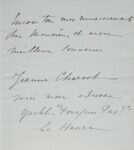 Encore tous mes remerciements
cher Monsieur et mon
meilleur souvenir
Jeanne Charcot
voici mon adresse
Yacht "Pourquoi Pas?"
Le Havre